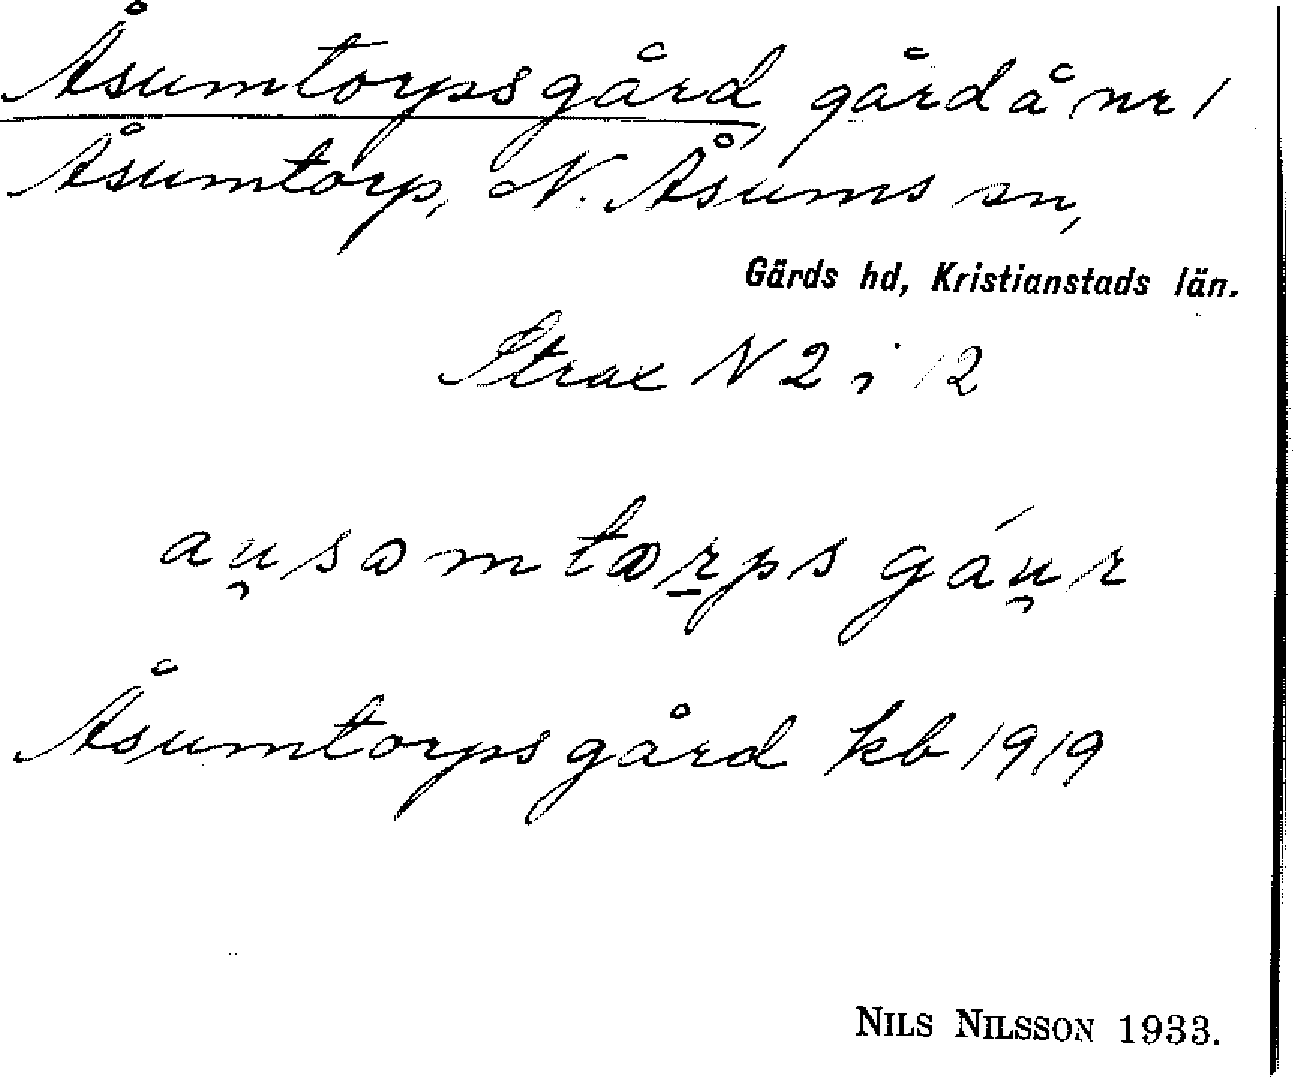 Åsumtorpsgård, gård å nr 1
Åsumtorp, N. Åsums sn,
Gärds hd, Kristianstads län.
Strax N 2 i 12
au̯somtɷr̠ps gáu̯r
Åsumtorpsgård kb 1919
NILS NILSSON 1933.